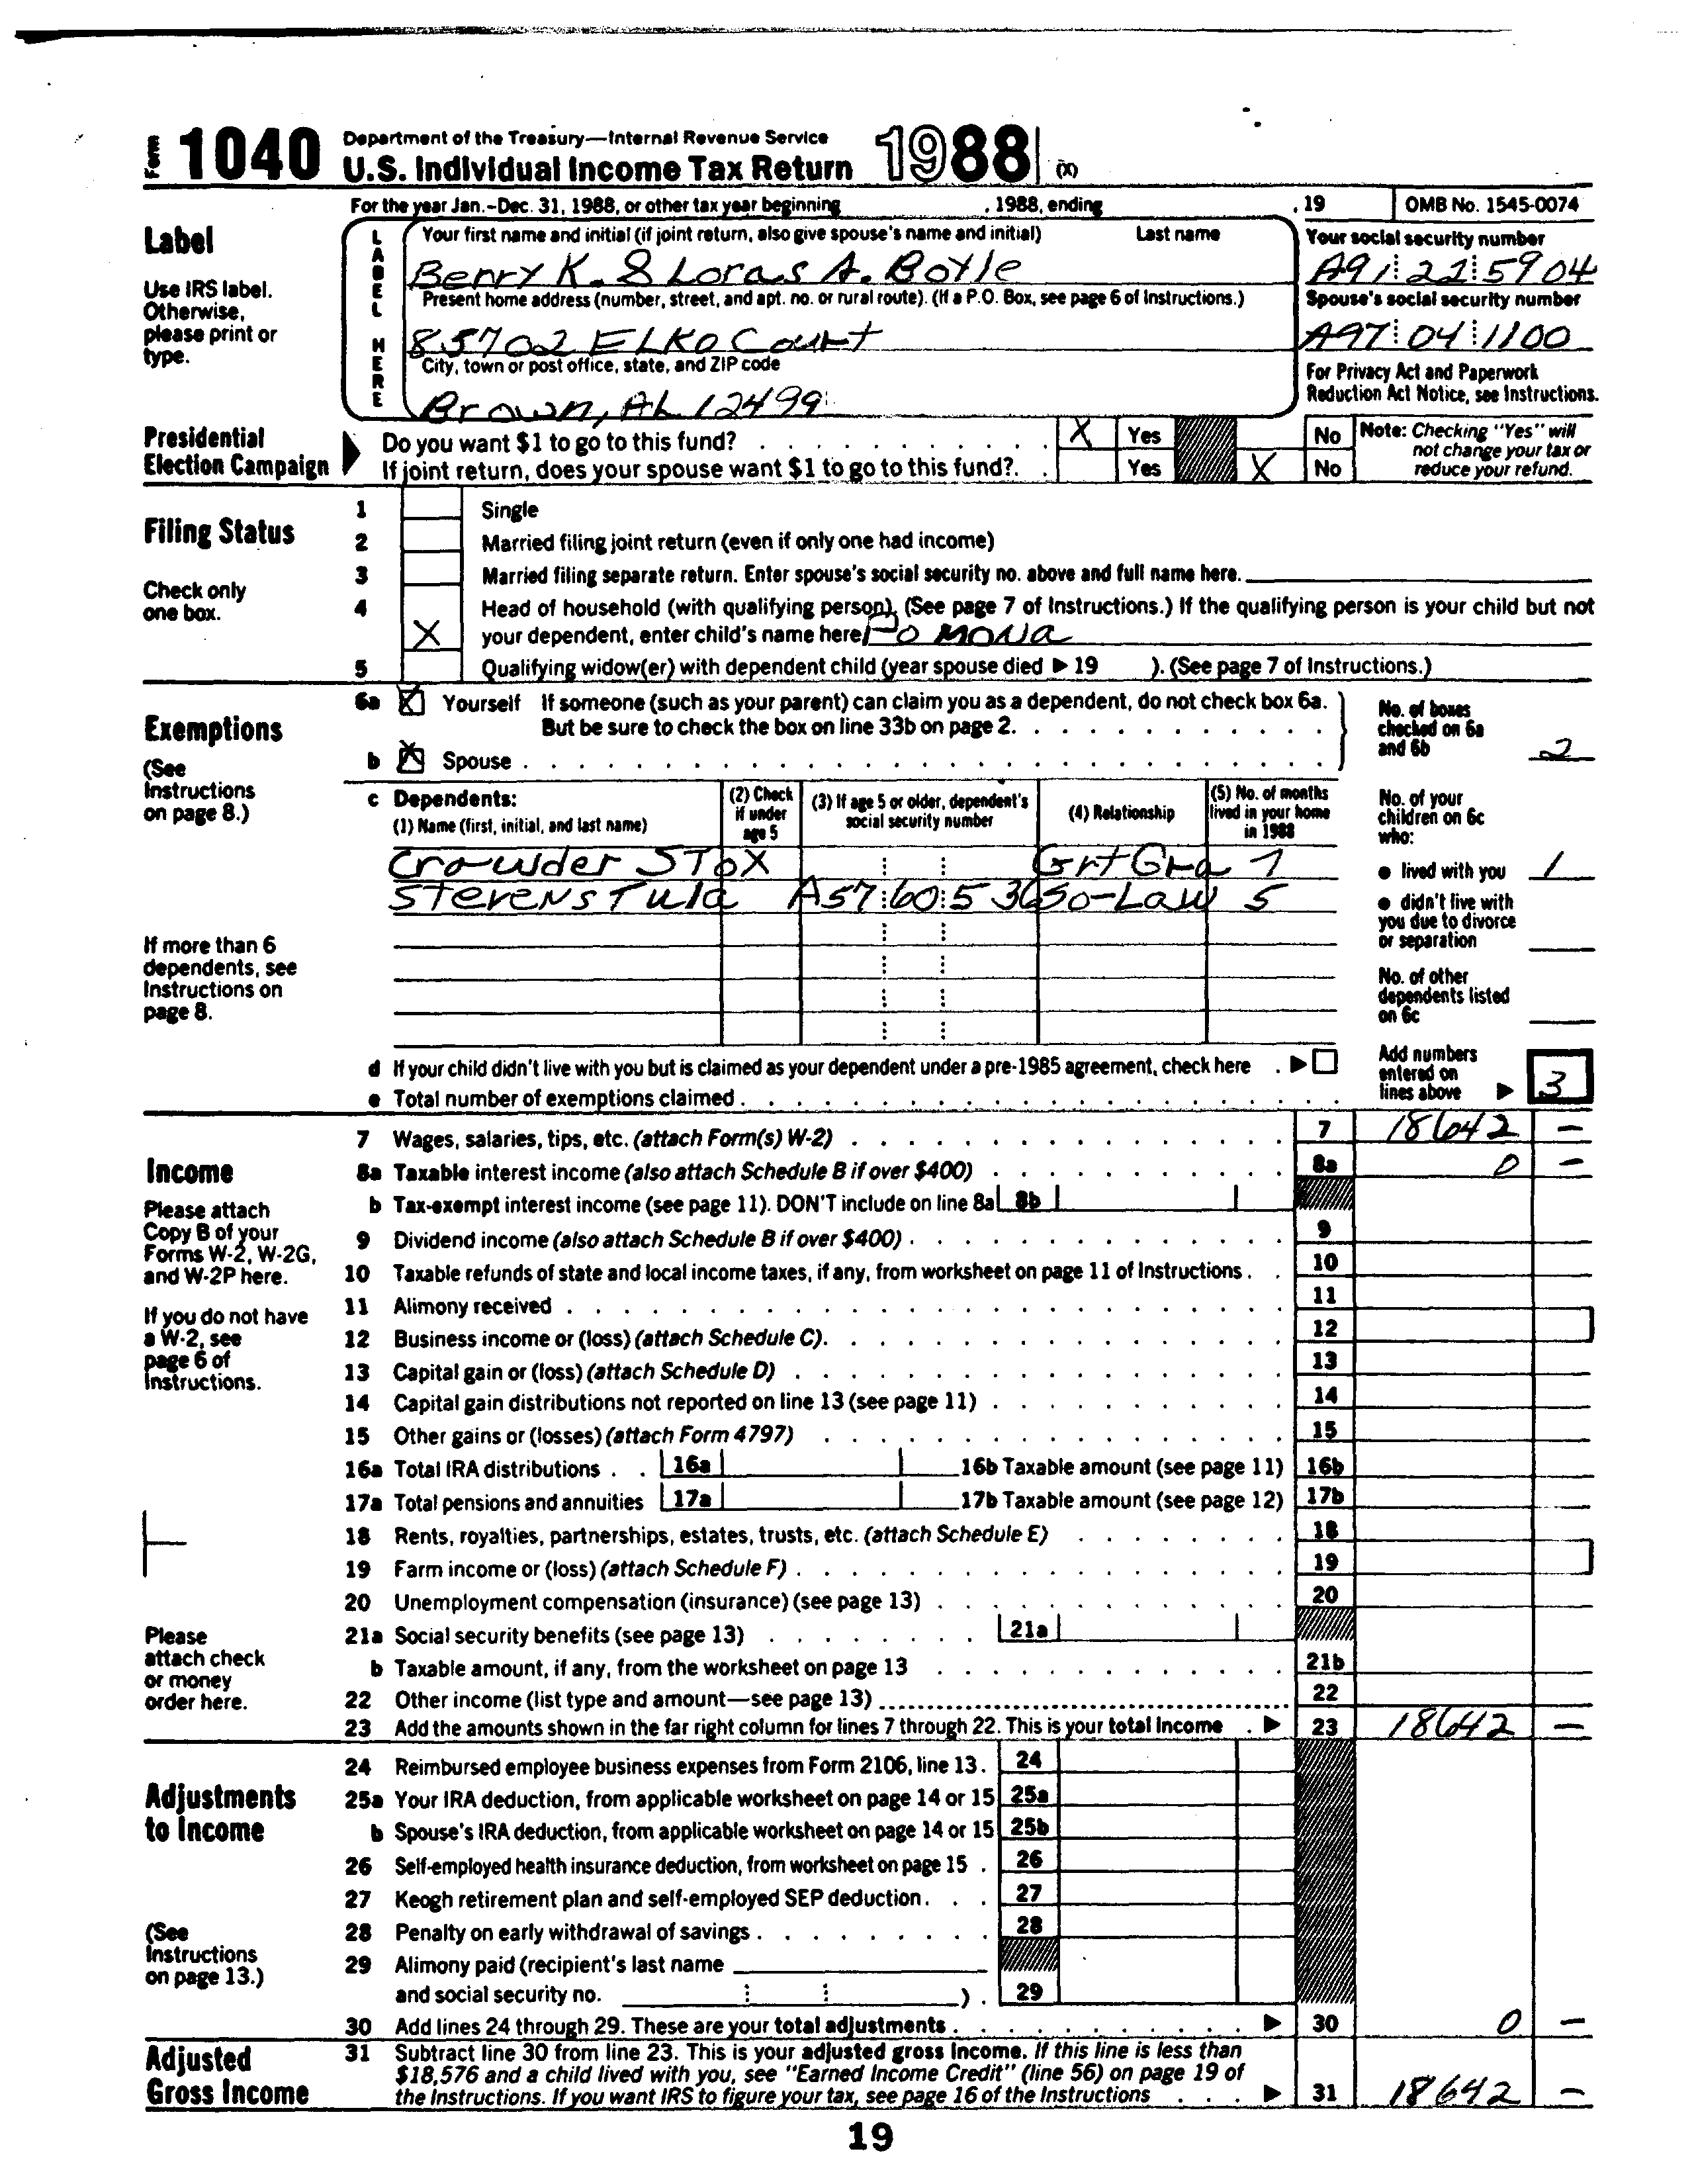 Form 1040 Department of the Treasury—Internal Revenue Service
U.S. Individual Income Tax Return 1988 (X)
For the year Jan.-Dec. 31, 1988, or other tax year beginning , 1988, ending , 19 OMB No. 1545-0074
Label
Use IRS label. Otherwise, please print or type.
LABEL HERE
Your first name and initial (if joint return, also give spouse's name and initial) Last name
Berry K. & Loras A. Boyle
Your social security number
A91 22 5904
Present home address (number, street, and apt. no. or rural route). (If a P.O. Box, see page 6 of Instructions.)
85702 ELKO Court
Spouse's social security number
A97 04 1100
City, town or post office, state, and ZIP code
Brown, AL 12499
For Privacy Act and Paperwork
Reduction Act Notice, see Instructions.
Presidential
Election Campaign
Do you want $1 to go to this fund? X Yes No
If joint return, does your spouse want $1 to go to this fund? Yes X No
Note: Checking "Yes" will
not change your tax or
reduce your refund.
Filing Status
Check only
one box.
1 Single
2 Married filing joint return (even if only one had income)
3 Married filing separate return. Enter spouse's social security no. above and full name here.
4 Head of household (with qualifying person). (See page 7 of Instructions.) If the qualifying person is your child but not
X your dependent, enter child's name here Pomona
5 Qualifying widow(er) with dependent child (year spouse died ▶ 19 ). (See page 7 of Instructions.)
Exemptions
(See
Instructions
on page 8.)
6a X Yourself If someone (such as your parent) can claim you as a dependent, do not check box 6a.
But be sure to check the box on line 33b on page 2.
b X Spouse
No. of boxes
checked on 6a
and 6b 2
c Dependents:
(1) Name (first, initial, and last name)
(2) Check
if under
age 5
(3) If age 5 or older, dependent's
social security number
(4) Relationship
(5) No. of months
lived in your home
in 1988
Crowder STo X GrtGra 7
Stevens Tula A57 60 536 So-Law 5
No. of your
children on 6c
who:
● lived with you 1
● didn't live with
you due to divorce
or separation
No. of other
dependents listed
on 6c
If more than 6
dependents, see
Instructions on
page 8.
d If your child didn't live with you but is claimed as your dependent under a pre-1985 agreement, check here ▶
e Total number of exemptions claimed
Add numbers
entered on
lines above ▶ 3
Income
Please attach
Copy B of your
Forms W-2, W-2G,
and W-2P here.
If you do not have
a W-2, see
page 6 of
Instructions.
Please
attach check
or money
order here.
7 Wages, salaries, tips, etc. (attach Form(s) W-2) 7 18642 —
8a Taxable interest income (also attach Schedule B if over $400) 8a 0 —
b Tax-exempt interest income (see page 11). DON'T include on line 8a 8b
9 Dividend income (also attach Schedule B if over $400) 9
10 Taxable refunds of state and local income taxes, if any, from worksheet on page 11 of Instructions 10
11 Alimony received 11
12 Business income or (loss) (attach Schedule C) 12
13 Capital gain or (loss) (attach Schedule D) 13
14 Capital gain distributions not reported on line 13 (see page 11) 14
15 Other gains or (losses) (attach Form 4797) 15
16a Total IRA distributions 16a 16b Taxable amount (see page 11) 16b
17a Total pensions and annuities 17a 17b Taxable amount (see page 12) 17b
18 Rents, royalties, partnerships, estates, trusts, etc. (attach Schedule E) 18
19 Farm income or (loss) (attach Schedule F) 19
20 Unemployment compensation (insurance) (see page 13) 20
21a Social security benefits (see page 13) 21a
b Taxable amount, if any, from the worksheet on page 13 21b
22 Other income (list type and amount—see page 13) 22
23 Add the amounts shown in the far right column for lines 7 through 22. This is your total income ▶ 23 18642 —
Adjustments
to Income
(See
Instructions
on page 13.)
24 Reimbursed employee business expenses from Form 2106, line 13. 24
25a Your IRA deduction, from applicable worksheet on page 14 or 15 25a
b Spouse's IRA deduction, from applicable worksheet on page 14 or 15 25b
26 Self-employed health insurance deduction, from worksheet on page 15 26
27 Keogh retirement plan and self-employed SEP deduction 27
28 Penalty on early withdrawal of savings 28
29 Alimony paid (recipient's last name
and social security no. ) 29
30 Add lines 24 through 29. These are your total adjustments ▶ 30 0 —
Adjusted
Gross Income
31 Subtract line 30 from line 23. This is your adjusted gross income. If this line is less than
$18,576 and a child lived with you, see "Earned Income Credit" (line 56) on page 19 of
the Instructions. If you want IRS to figure your tax, see page 16 of the Instructions ▶ 31 18642 —
19